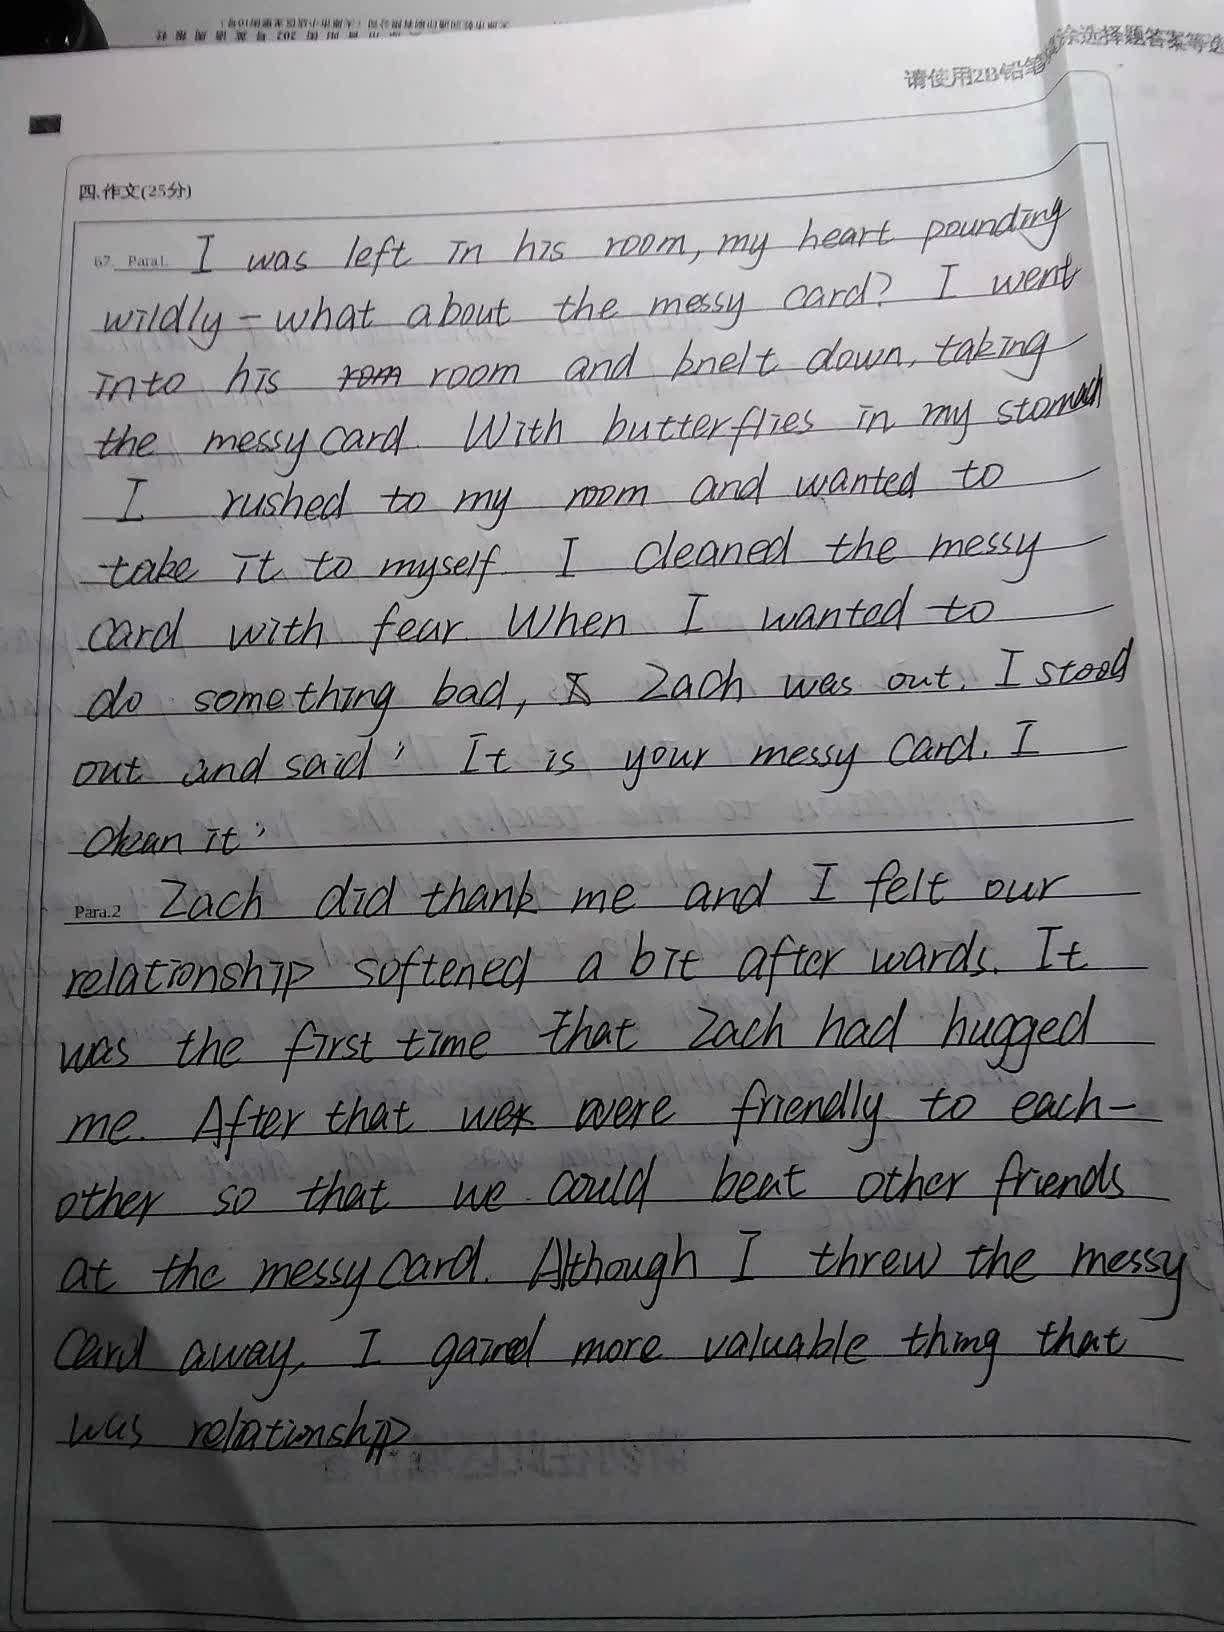 请使用2B铅笔
涂选择题答案等选
四.作文(25分)
67. Para1. I was left in his room, my heart pounding
wildly – what about the messy card? I went
into his room and knelt down, taking
the messy card. With butterflies in my stomach
I rushed to my room and wanted to
take it to myself. I cleaned the messy
card with fear. When I wanted to
do something bad, Zach was out. I stood
out and said' It is your messy card. I
clean it'
Para.2 Zach did thank me and I felt our
relationship softened a bit after wards. It
was the first time that Zach had hugged
me. After that were friendly to each-
other so that we could beat other friends
at the messy card. Although I threw the messy
card away, I gained more valuable thing that
was relationship